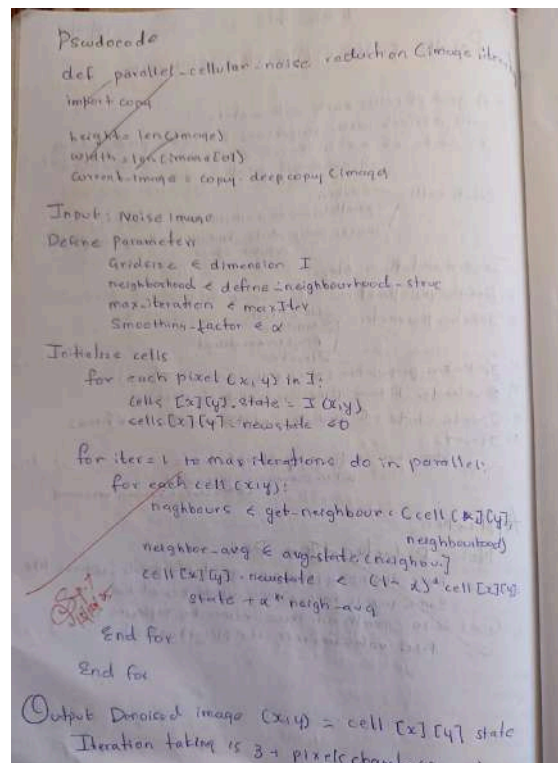 Pseudocode
def parallel-cellular-noise reduction (image,
import copy
height = len(image)
width = len(image[0])
current-image = copy.deepcopy (image)
Input: Noise image
Define parameters
Gridsize ← dimension I
neighborhood ← define-neighbourhood-struc
max-iteration ← maxIter
Smoothing-factor ← α
Initialise cells
for each pixel (x,y) in I:
cells [x][y].state = I (x,y)
cells [x][y].newstate ← 0
for iter = 1 to max iterations do in parallel:
for each cell (x,y):
neghbours ← get-neighbour (cell [x][y],
neighbourhood)
neighbor-avg ← avg-state (neighbour]
cell [x][y].newstate ← (1-α)* cell [x][y].
state + α * neigh-avg
End for
End for
Output Denoised image (x,y) = cell [x][y] state
Iteration taking is 3 +